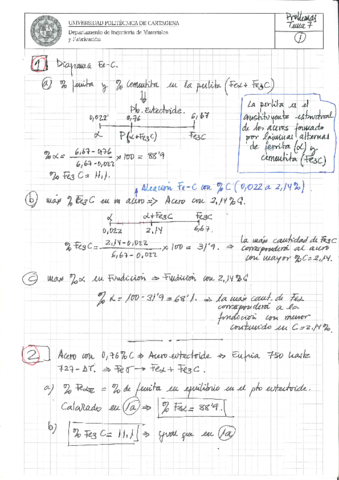 UNIVERSIDAD POLITÉCNICA DE CARTAGENA
Departamento de Ingeniería de Materiales
y Fabricación
Problemas
Tema 7
1
1 Diagrama Fe-C.
a) % ferrita y % cementita en la perlita (Feα + Fe3C)
Pto. eutectoide.
0,022 0,76 6,67
α P(α+Fe3C) Fe3C
%α = 6,67-0,76 / 6,67-0,022 x100 = 88'9
% Fe3C = 11,1
La perlita es el
constituyente estructural
de los aceros formado
por láminas alternas
de ferrita (α) y
cementita (Fe3C)
Aleación Fe-C con % C (0,022 a 2,14%)
b) máx % Fe3C en un acero => Acero con 2,14% C.
α α+Fe3C Fe3C
0,022 2,14 6,67
% Fe3C = 2,14-0,022 / 6,67-0,022 x100 = 31'9.
=> la max cantidad de Fe3C
corresponderá al acero
con mayor %C = 2,14.
c) max %α en Fundición => Fundición con 2,14% C
% α = 100-31'9 = 68'1 %
=> la máx cant. de Feα
corresponderá a la
fundición con menor
contenido en C = 2,14%
2 Acero con 0,76% C => Acero eutectoide => Enfría 750 hasta
727-ΔT. => Feγ → Feα + Fe3C.
a) % Feα = % de ferrita en equilibrio en el pto eutectoide.
Calculado en 1a => % Feα = 88'9.
b) % Fe3C = 11,1 => igual que en 1a